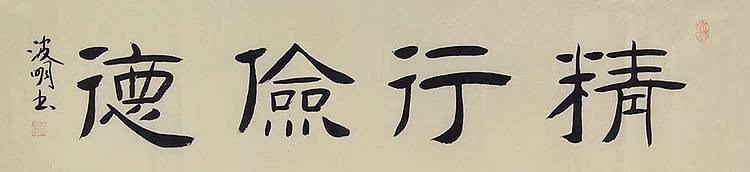 精行儉德
波明书